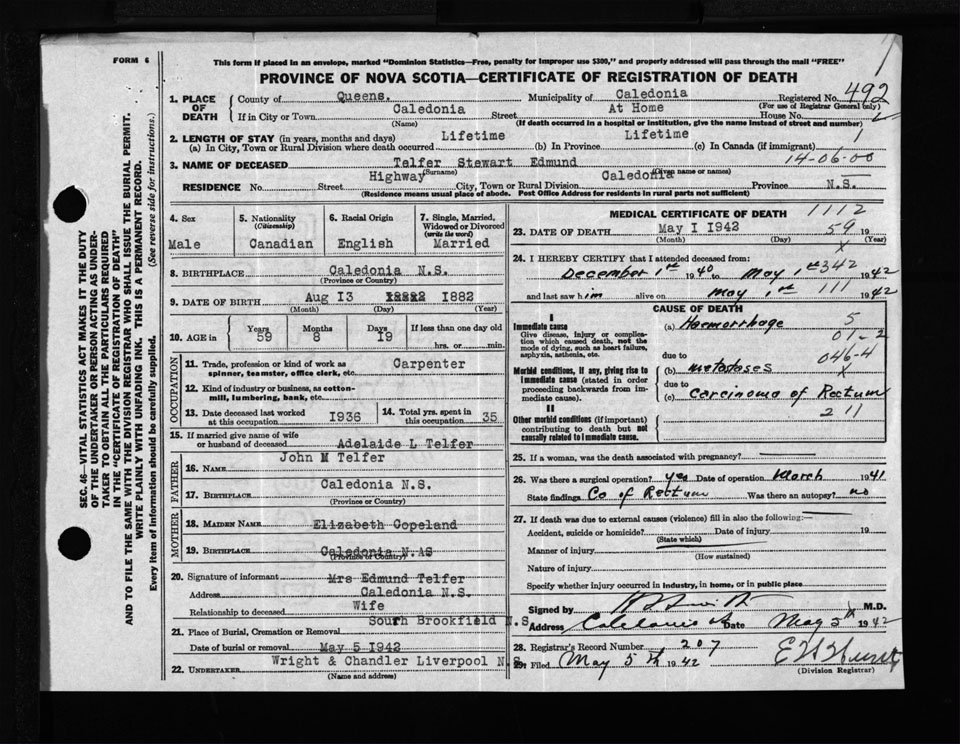 FORM 6
This form if placed in an envelope, marked "Dominion Statistics—Free, penalty for improper use $300," and properly addressed will pass through the mail "FREE"
PROVINCE OF NOVA SCOTIA—CERTIFICATE OF REGISTRATION OF DEATH
SEC. 46—VITAL STATISTICS ACT MAKES IT THE DUTY
OF THE UNDERTAKER OR PERSON ACTING AS UNDER-
TAKER TO OBTAIN ALL THE PARTICULARS REQUIRED
IN THE "CERTIFICATE OF REGISTRATION OF DEATH"
AND TO FILE THE SAME WITH THE DIVISION REGISTRAR WHO SHALL ISSUE THE BURIAL PERMIT.
WRITE PLAINLY WITH UNFADING INK. THIS IS A PERMANENT RECORD.
Every item of information should be carefully supplied. (See reverse side for instructions.)
1. PLACE OF DEATH
County of Queens. Municipality of Caledonia Registered No. 492
(For use of Registrar General only)
If in City or Town Caledonia Street At Home House No.
(Name) (If death occurred in a hospital or institution, give the name instead of street and number)
2. LENGTH OF STAY (in years, months and days)
(a) In City, Town or Rural Division where death occurred Lifetime (b) In Province Lifetime (c) In Canada (if immigrant) 1
3. NAME OF DECEASED Telfer Stewart Edmund 14-06-00
(Surname) (Given name or names)
RESIDENCE No. Street Highway City, Town or Rural Division Caledonia Province N.S.
(Residence means usual place of abode. Post Office Address for residents in rural parts not sufficient)
4. Sex Male
5. Nationality (Citizenship) Canadian
6. Racial Origin English
7. Single, Married, Widowed or Divorced (write the word) Married
8. BIRTHPLACE Caledonia N.S.
(Province or Country)
9. DATE OF BIRTH Aug 13 1882
(Month) (Day) (Year)
10. AGE in Years 59 Months 8 Days 19 If less than one day old
hrs. or min.
OCCUPATION
11. Trade, profession or kind of work as spinner, teamster, office clerk, etc. Carpenter
12. Kind of industry or business, as cotton-mill, lumbering, bank, etc.
13. Date deceased last worked at this occupation 1936
14. Total yrs. spent in this occupation 35
15. If married give name of wife or husband of deceased Adelaide L Telfer
FATHER
16. NAME John M Telfer
17. BIRTHPLACE Caledonia N.S.
(Province or Country)
MOTHER
18. MAIDEN NAME Elizabeth Copeland
19. BIRTHPLACE Caledonia N.AS
(Province or Country)
20. Signature of informant Mrs Edmund Telfer
Address Caledonia N.S.
Relationship to deceased Wife
21. Place of Burial, Cremation or Removal South Brookfield N.S.
Date of burial or removal May 5 1942
22. UNDERTAKER Wright & Chandler Liverpool N.S.
(Name and address)
MEDICAL CERTIFICATE OF DEATH 1112
23. DATE OF DEATH May I 1942 59 19
(Month) (Day) (Year)
24. I HEREBY CERTIFY that I attended deceased from:
December 1st 1940 to May 1st 342 1942
and last saw him alive on May 1st 111 1942
CAUSE OF DEATH
I
Immediate cause
Give disease, injury or complication which caused death, not the mode of dying, such as heart failure, asphyxia, asthenia, etc.
(a) Haemorrhage 5
01-2
Morbid conditions, if any, giving rise to immediate cause (stated in order proceeding backwards from immediate cause).
due to 046-4
(b) metastases x
due to
(c) Carcinoma of Rectum
II
Other morbid conditions (if important) contributing to death but not causally related to immediate cause.
211
25. If a woman, was the death associated with pregnancy?
26. Was there a surgical operation? yes Date of operation March 1941
State findings Ca of Rectum Was there an autopsy? no
27. If death was due to external causes (violence) fill in also the following:—
Accident, suicide or homicide? Date of injury 19
(State which)
Manner of injury
(How sustained)
Nature of injury
Specify whether injury occurred in industry, in home, or in public place
Signed by M.D.
Address Caledonia Date May 5th 1942
28. Registrar's Record Number 207
29. Filed May 5th 1942
(Division Registrar)